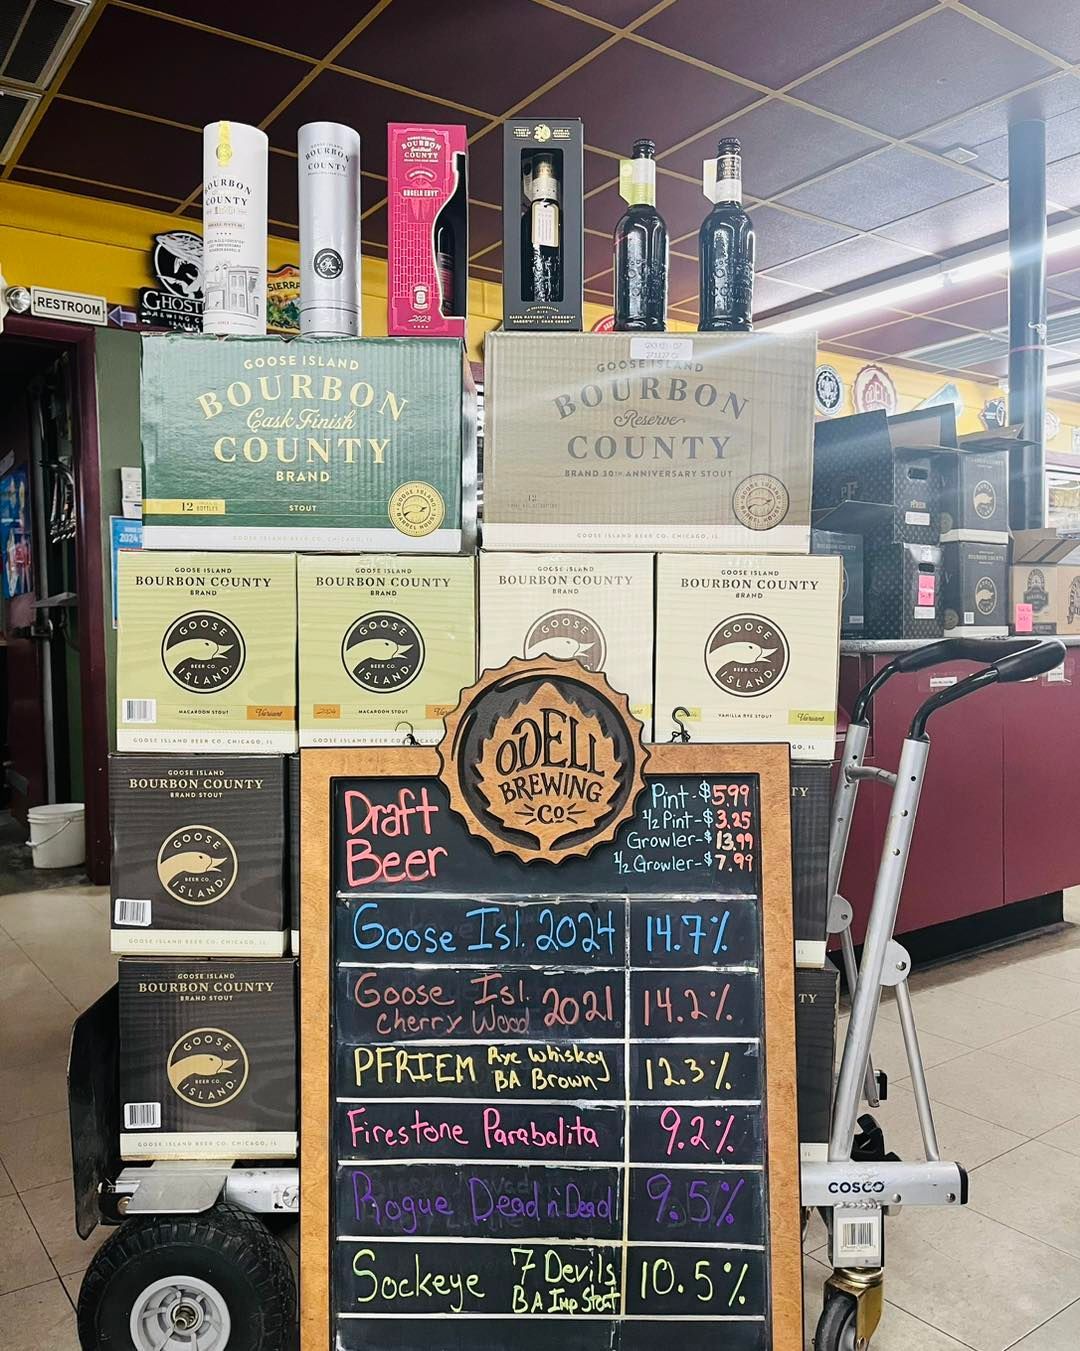 BOURBON
COUNTY
BOURBON
COUNTY
BOURBON
COUNTY
ANGEL'S ENVY
2023
30
RESTROOM
GHOST
SIERRA
GOOSE ISLAND
BOURBON
Cask Finish
COUNTY
BRAND
12 BOTTLES
STOUT
GOOSE ISLAND BEER CO. CHICAGO, IL
GOOSE ISLAND
BOURBON
Reserve
COUNTY
BRAND 30TH ANNIVERSARY STOUT
12
GOOSE ISLAND BEER CO. CHICAGO, IL
GOOSE ISLAND
BOURBON COUNTY
BRAND
GOOSE
BEER CO.
ISLAND
MACAROON STOUT
Variant
GOOSE ISLAND BEER CO. CHICAGO, IL
GOOSE ISLAND
BOURBON COUNTY
BRAND
GOOSE
BEER CO.
ISLAND
MACAROON STOUT
GOOSE ISLAND BEER CO. CHICAGO, IL
GOOSE ISLAND
BOURBON COUNTY
BRAND
GOOSE
GOOSE ISLAND
BOURBON COUNTY
BRAND
GOOSE
BEER CO.
ISLAND
VANILLA RYE STOUT
Variant
GOOSE ISLAND
BOURBON COUNTY
BRAND STOUT
GOOSE
BEER CO.
ISLAND
GOOSE ISLAND BEER CO. CHICAGO, IL
GOOSE ISLAND
BOURBON COUNTY
BRAND STOUT
GOOSE
BEER CO.
ISLAND
GOOSE ISLAND BEER CO. CHICAGO, IL
ODELL
BREWING
CO
Draft
Beer
Pint-$5.99
1/2 Pint-$3.25
Growler-$13.99
1/2 Growler-$7.99
Goose Isl. 2024 14.7%
Goose Isl. 2021 14.2%
Cherry Wood
PFRIEM Rye Whiskey 12.3%
BA Brown
Firestone Parabolita 9.2%
Rogue Dead n' Dead 9.5%
Sockeye 7 Devils 10.5%
BA Imp Stout
COSCO